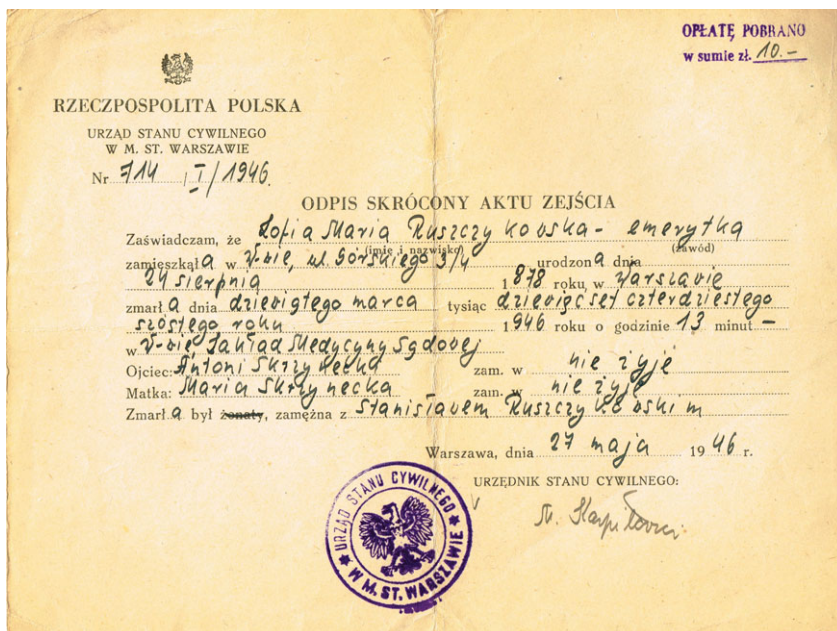 OPŁATĘ POBRANO
w sumie zł. 10.-
RZECZPOSPOLITA POLSKA
URZĄD STANU CYWILNEGO
W M. ST. WARSZAWIE
Nr 714 I/1946
ODPIS SKRÓCONY AKTU ZEJŚCIA
Zaświadczam, że Zofia Maria Ruszczykowska - emerytka
(imię i nazwisko) (zawód)
zamieszkała w W-wie, ul. Górskiego 3/4 urodzona dnia
24 sierpnia 1878 roku, w Warszawie
zmarła dnia dziewiątego marca tysiąc dziewięćset czterdziestego
szóstego roku 1946 roku o godzinie 13 minut —
w W-wie Zakład Medycyny Sądowej
Ojciec: Antoni Skrzynecki zam. w nie żyje
Matka: Maria Skrzynecka zam. w nie żyje
Zmarła był żonaty, zamężna z Stanisławem Ruszczykowskim
Warszawa, dnia 27 maja 1946 r.
URZĘDNIK STANU CYWILNEGO:
URZĄD STANU CYWILNEGO
W M. ST. WARSZAWIE